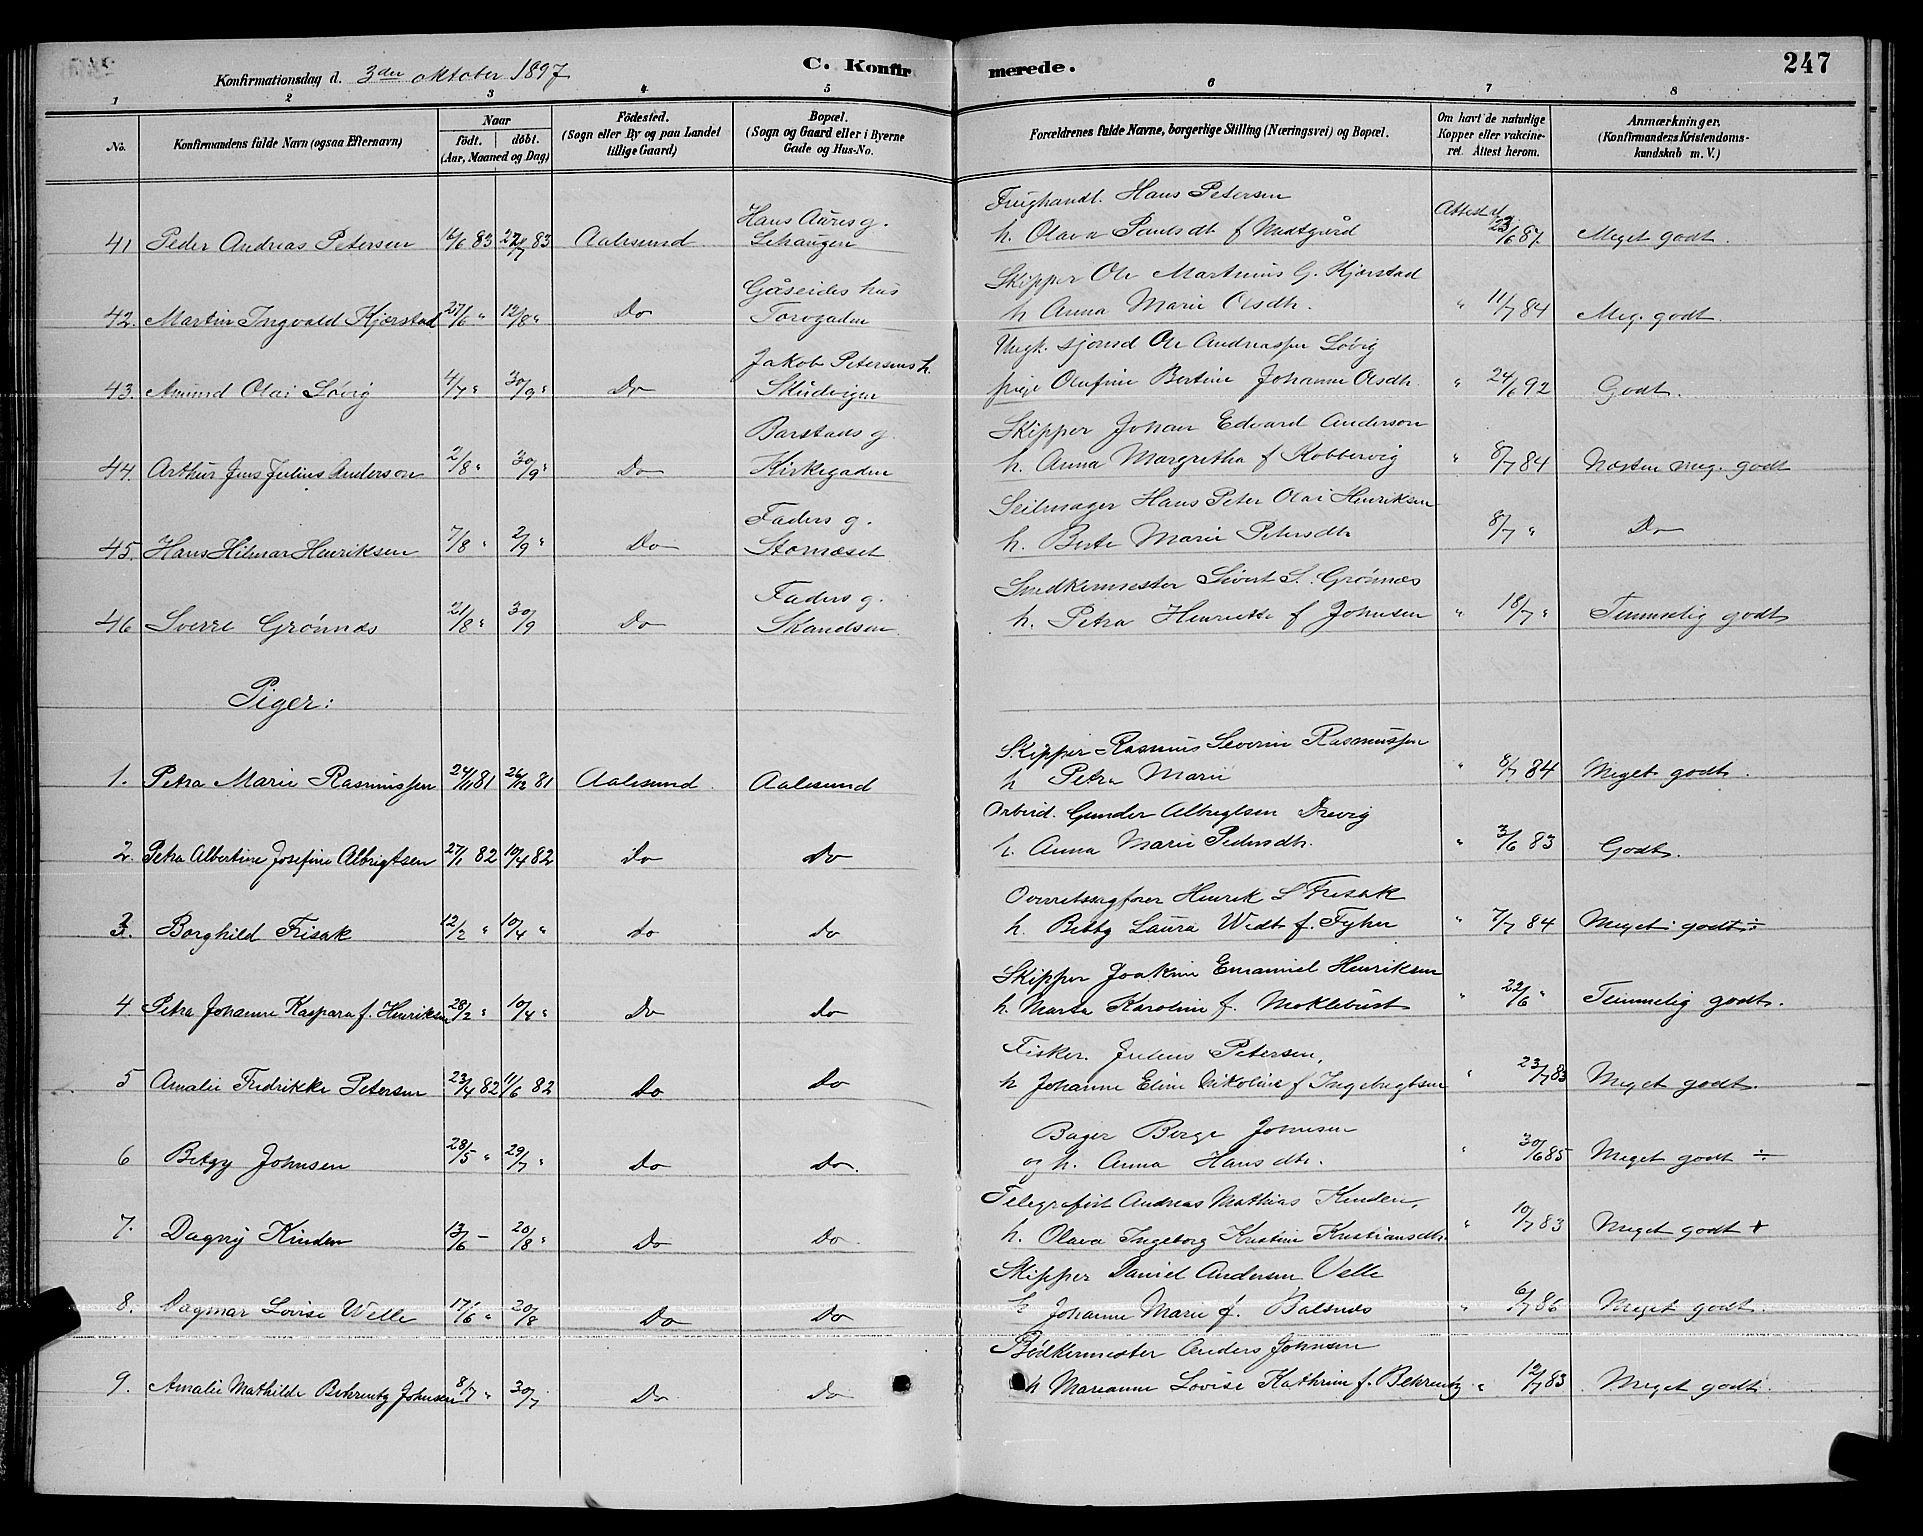 Konfirmationsdag d. 3die oktober 1897
C. Konfirmerede.
247
1 2 3 4 5 6 7 8
No.
Konfirmandens fulde Navn (ogsaa Efternavn)
Naar
født. døbt.
(Aar, Maaned og Dag)
Fødested.
(Sogn eller By og paa Landet
tillige Gaard)
Bopæl.
(Sogn og Gaard eller i Byerne
Gade og Hus-No.
Forældrenes fulde Navne, borgerlige Stilling (Næringsvei) og Bopæl.
Om havt de naturlige
Kopper eller vakcine-
ret. Attest herom.
Anmærkninger.
(Konfirmandens Kristendoms-
kundskab m. V.)
Hans Aures g. Hans Petersen Attest d.
41 Peder Andreas Petersen 16/6 83 83 Aalesund h. Olava f 23/6 87 Meget godt.
Gåseides hus Skipper Ole Martinius G. Kjærstad
42. Martin Ingvald Kjærstad 27/6 " 12/8 " Do h Anna Marie Olsdtr. " 11/7 84 Meg. godt
Jakob Petersens h. Ungk. Ole Andreassen Løvig
43. Amund Olai Løvig 4/7 " 30/9 " Do pige Olufine Bertine Johanne Olsdtr " 24/6 92 Godt.
Barstads g. Skipper Johan Edvard Anderson
44. Arthur Jens Julius Anderson 2/8 " 30/9 " Do Kirkegaden h. Anna Margretha f Kobbervig " 8/7 84 Næsten meg. godt
Faders g. Seilmager Hans Peter Olai Henriksen
45. Hans Hilmar Henriksen 7/8 " 2/9 " Do Storneset h. Berte Marie Petersdtr " 8/7 " Do
Faders g. Snedkermester Sivert S. Grønnæs
46 Sverre Grønnæs 21/8 " 30/9 Do Skandsen h. Petra Henriette f Johnsen " 18/7 " Temmelig godt
Piger:
Skipper Rasmus Severin Rasmussen
1. Petra Marie Rasmussen 24/11 81 26/12 81 Aalesund Aalesund h Petra Marie " 8/7 84 Meget godt.
Arbeid. Gunder Albregtsen Drevig
2. Petra Albertine Josefine Albrigtsen 27/1 82 10/4 82 Do Do h. Anna Marie Pedersdtr. " 3/6 83 Godt.
Overretssagfører Henrik L Frisak
3. Borghild Frisak 12/2 " 10/4 " do do h. Betty Laura Wedt f. " 7/7 84 Meget godt ÷
Skipper Joakim Emanuel Henriksen
4 Petra Johanne Kaspara f. Henriksen 28/2 " 10/4 " Do do h. Marta Karoline f. Moklebust " 22/6 " Temmelig godt.
Fisker. Julius Petersen,
5 Amalie Fredrikke Petersen 23/4 82 11/6 82 Do Do h Johanne Eline Nikoline f Ingebrigtsen " 23/7 83 Meget godt.
Bager Berge Johnsen
6 Betzy Johnsen 28/5 " 29/7 " Do Do. og h. Anna Hansdtr. " 30/6 85 Meget godt ÷
Telegrafist Andreas Mathias Kinden,
7. Dagny Kinden 13/6 - 20/8 " Do Do h. Olava Ingeborg Kristine Kristiansdtr. " 10/7 83 Meget godt +
Skipper Daniel Andersen Velle
8. Dagmar Lovise Welle 17/6 " 20/8 Do Do h Johanne Marie f. Balsnes " 6/7 86 Meget godt.
Bødkermester Anders Johnsen
9. Amalie Mathilde Behrentz Johnsen 8/7 " 30/7 Do Do h Marianne Lovise Kathrine f. Behrentz " 12/7 83 Meget godt.